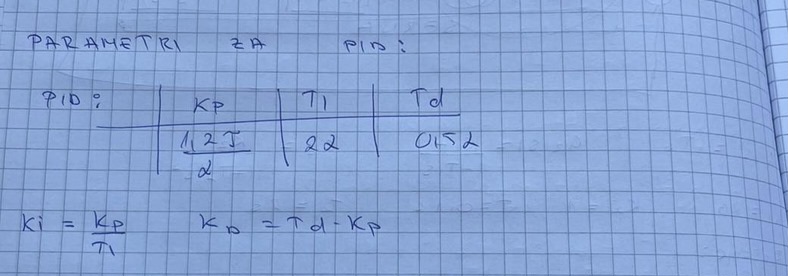 PARAMETRI ZA PID:
PID: KP TI Td
1,2T/α 2α 0,5α
Ki = Kp/TI KD = Td · Kp